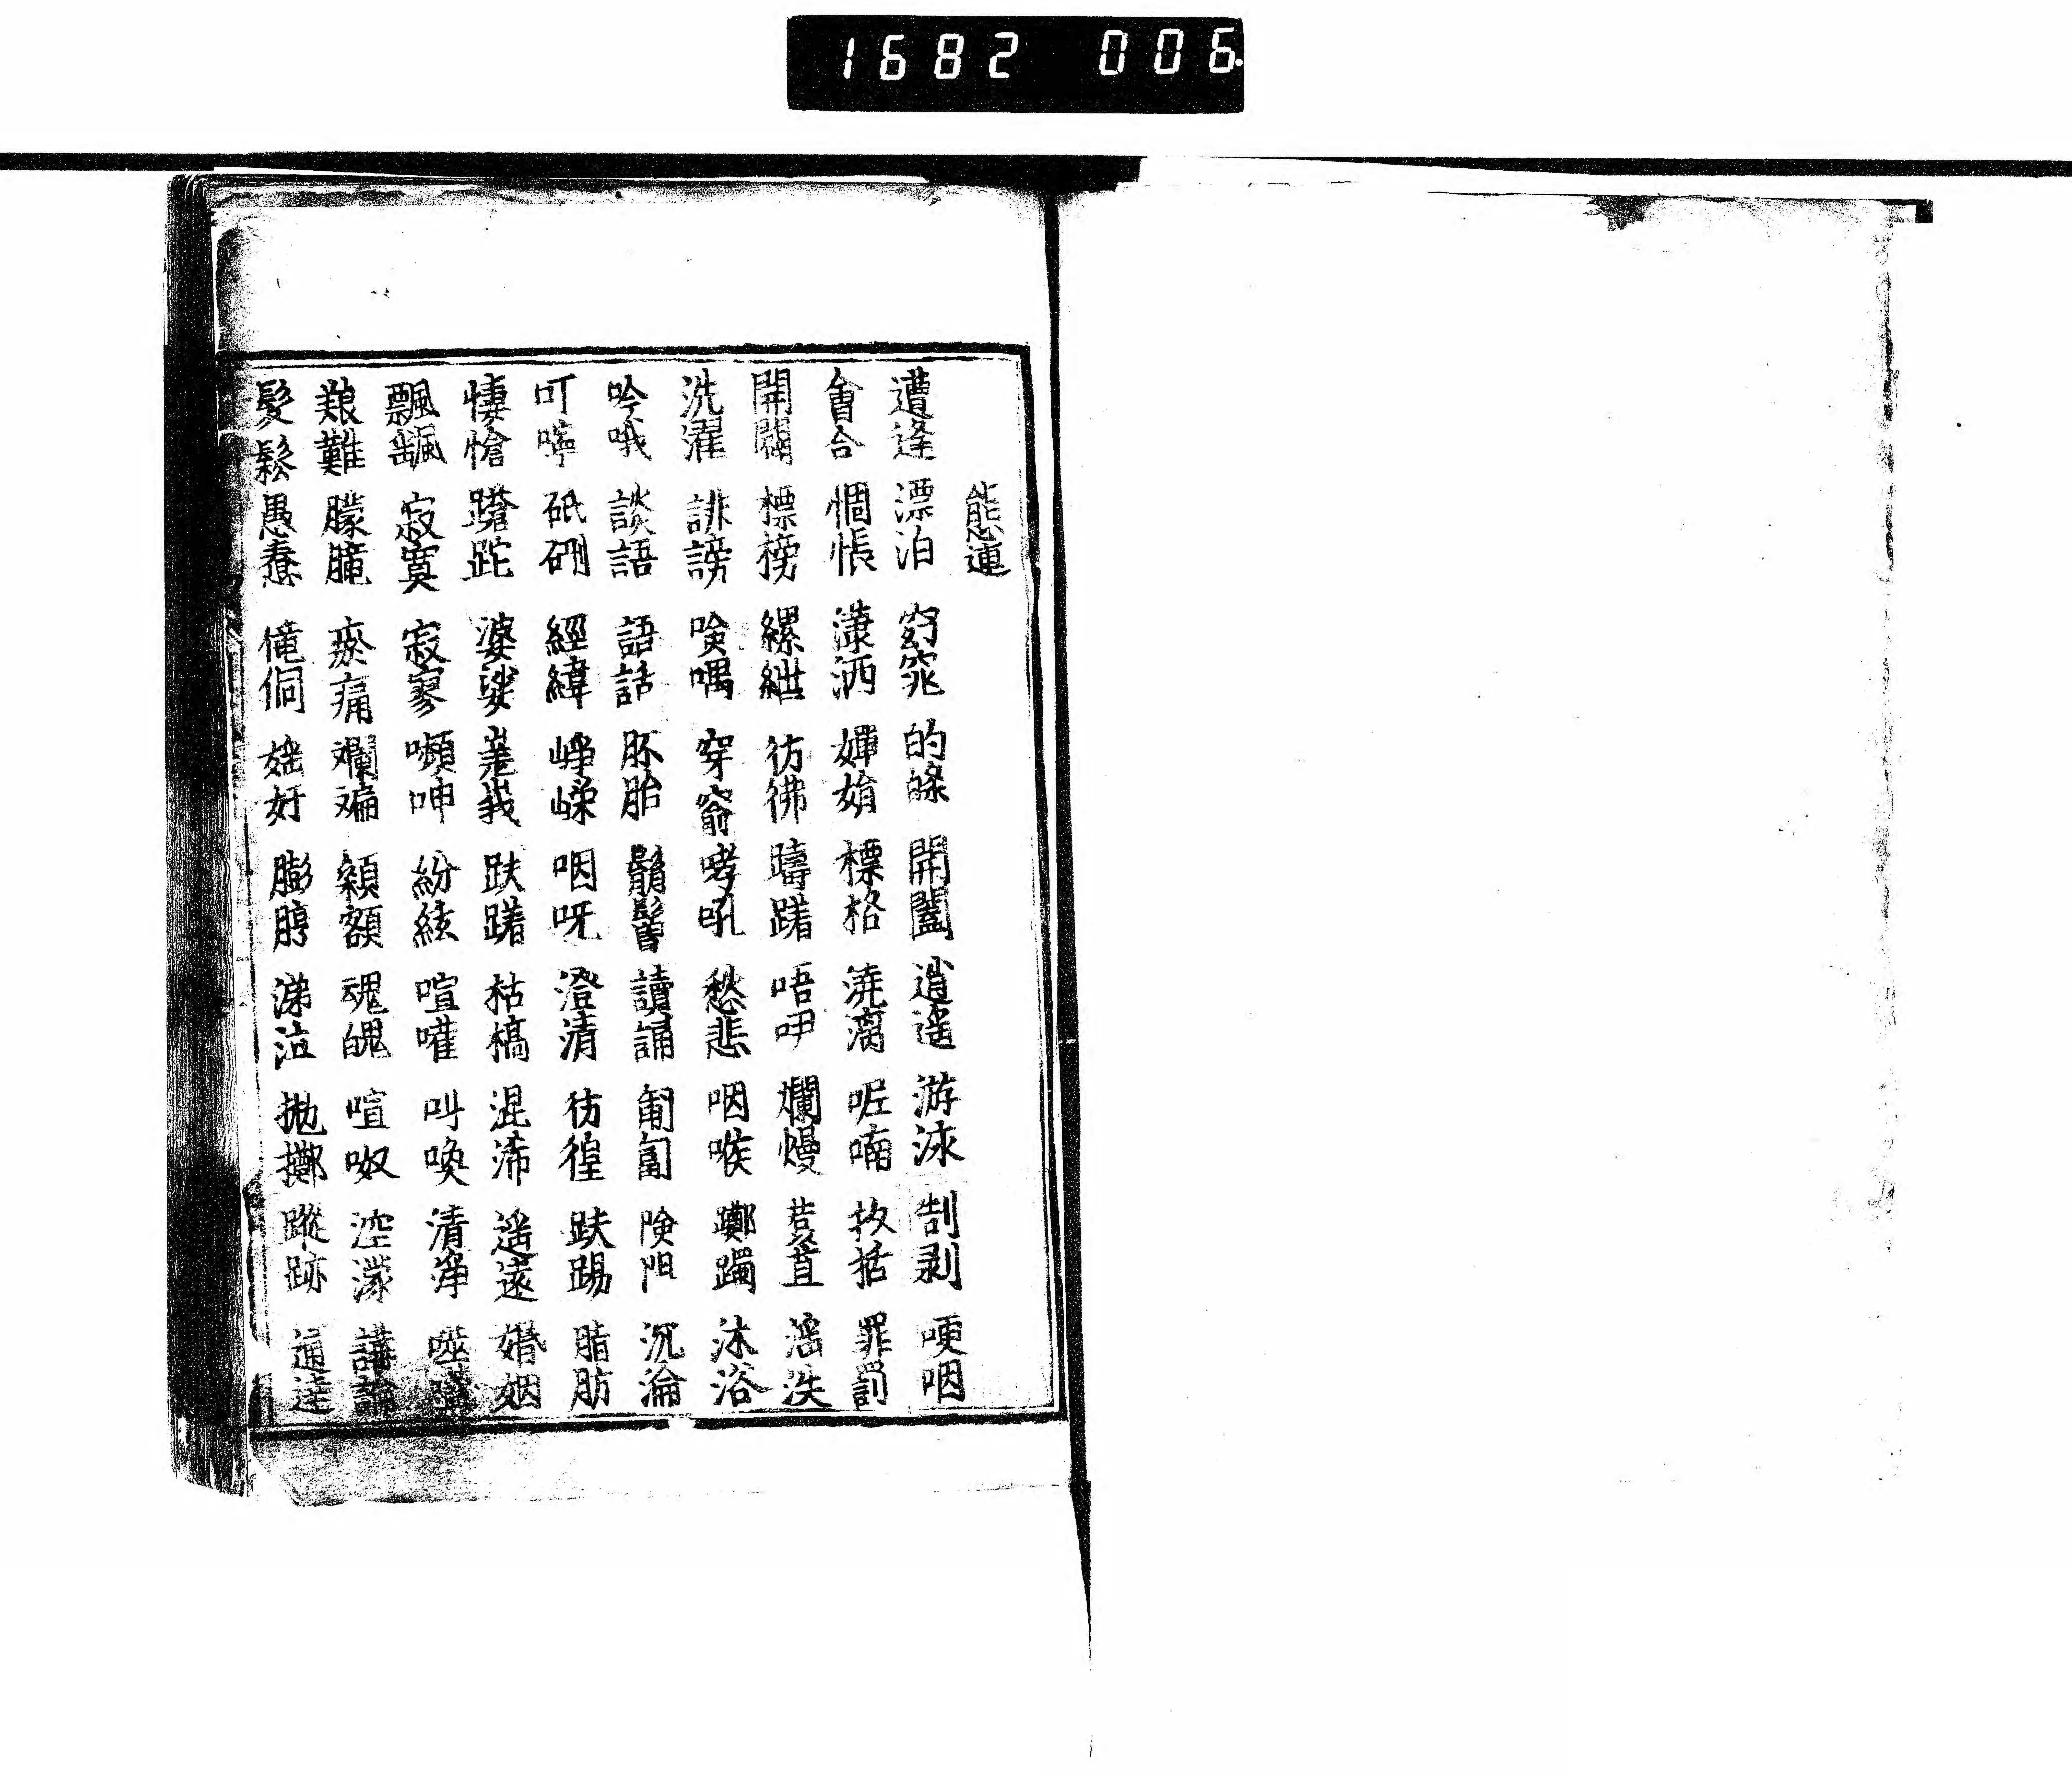 1682 006
態連
遭逢 漂泊 窈窕 的皪 開闔 逍遙 游泳 剞剥 哽咽
會合 惆悵 瀟洒 嬋娟 標格 澆漓 呢喃 括 罪罰
開闢 標榜 縲紲 彷彿 躊躇 唔咿 爛熳 苞苴 滛泆
洗濯 誹謗 喁 穿窬 哮吼 愁悲 咽喉 躑躅 沐浴
吟哦 談語 語話 胚胎 鬅鬙 讀誦 匍匐 険阻 沉淪
叮嚀 砥硎 經緯 崢嶸 咽呀 澄清 彷徨 趺踢 脂肪
悽愴 蹌跎 婆娑 嵳峩 趺躇 枯槁 混淆 遥遠 婚姻
飄颻 寂寞 寂寥 嚬呻 紛紜 喧嚾 叫喚 清淨
艱難 朦朧 瘀痛 斕斒 顙額 魂魄 喧呶 涳濛 講論
髼鬆 愚蠢 儱侗 媱奸 膨脝 涕泣 抛擲 蹤跡 通達